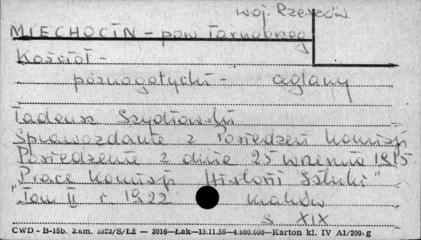 woj. Rzeszów
MIECHOCIN - pow. Tarnobrzeg
Kościół -
późnogotycki - ceglany
Tadeusz Szydłowski
Sprawozdanie z Posiedzeń Komisji
Posiedzenie z dnia 25 września 1915
Prace Komisji Historii Sztuki"
"Tom II r. 1922 Kraków
s XIX
CWD - B-15b. Zam. 6823/S/ŁŻ - 3016-Łak-15.11.56-4.000.000-Karton kl. IV A1/200 g